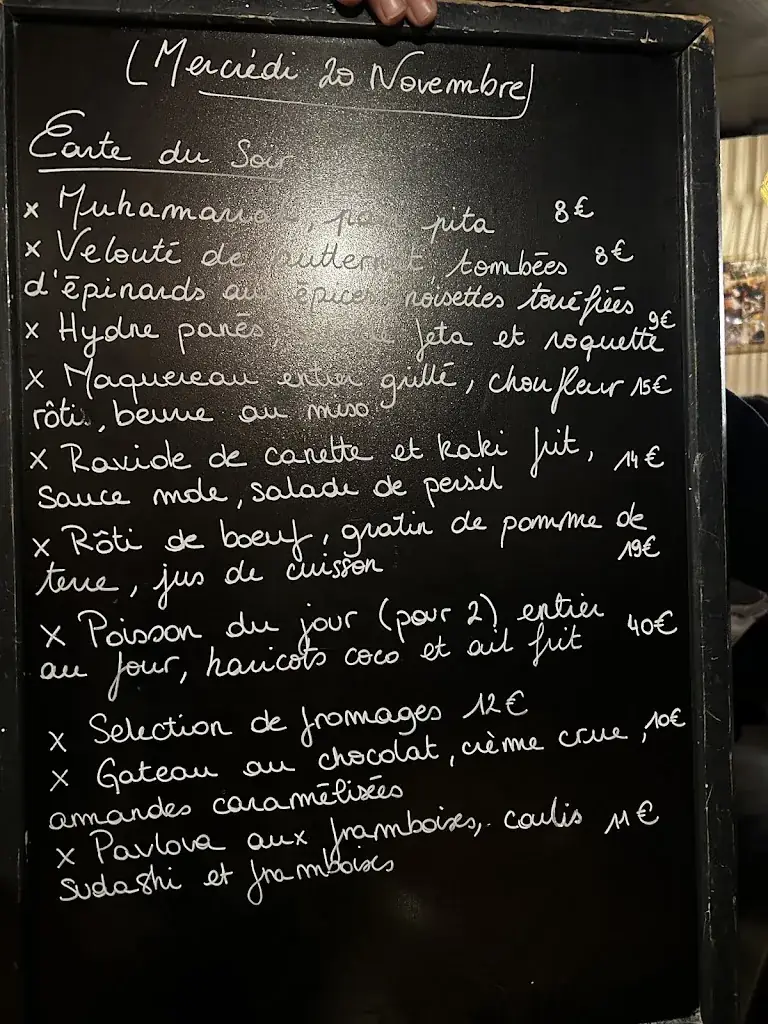 (Mercrédi 20 Novembre)
Carte du Soir
x Muhamara, pain pita 8€
x Velouté de butternut, tombées 8€
d'épinards aux épices, noisettes torréfiées
x Hydne panés, feta et roquette 9€
x Maquereau entier grillé, chou fleur 15€
rôti, beurre au miso
x Raviole de canette et kaki frit, 14€
sauce mole, salade de persil
x Rôti de boeuf, gratin de pomme de
terre, jus de cuisson 19€
x Poisson du jour (pour 2) entier
au four, haricots coco et ail frit 40€
x Selection de fromages 12€
x Gateau au chocolat, crème crue, 10€
amandes caramélisées
x Pavlova aux framboises, coulis 11€
sudashi et framboises